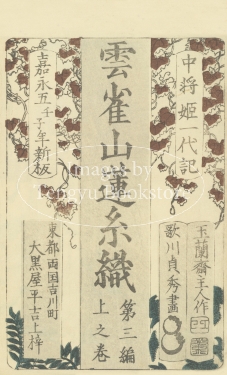 中将姫一代記
玉蘭齋主人作
歌川貞秀画
雲雀山蓮糸織
第三編
上之巻
嘉永五壬子年新板
東都両国吉川町
大黒屋平吉上梓
Image by
Tengyu Bookstore